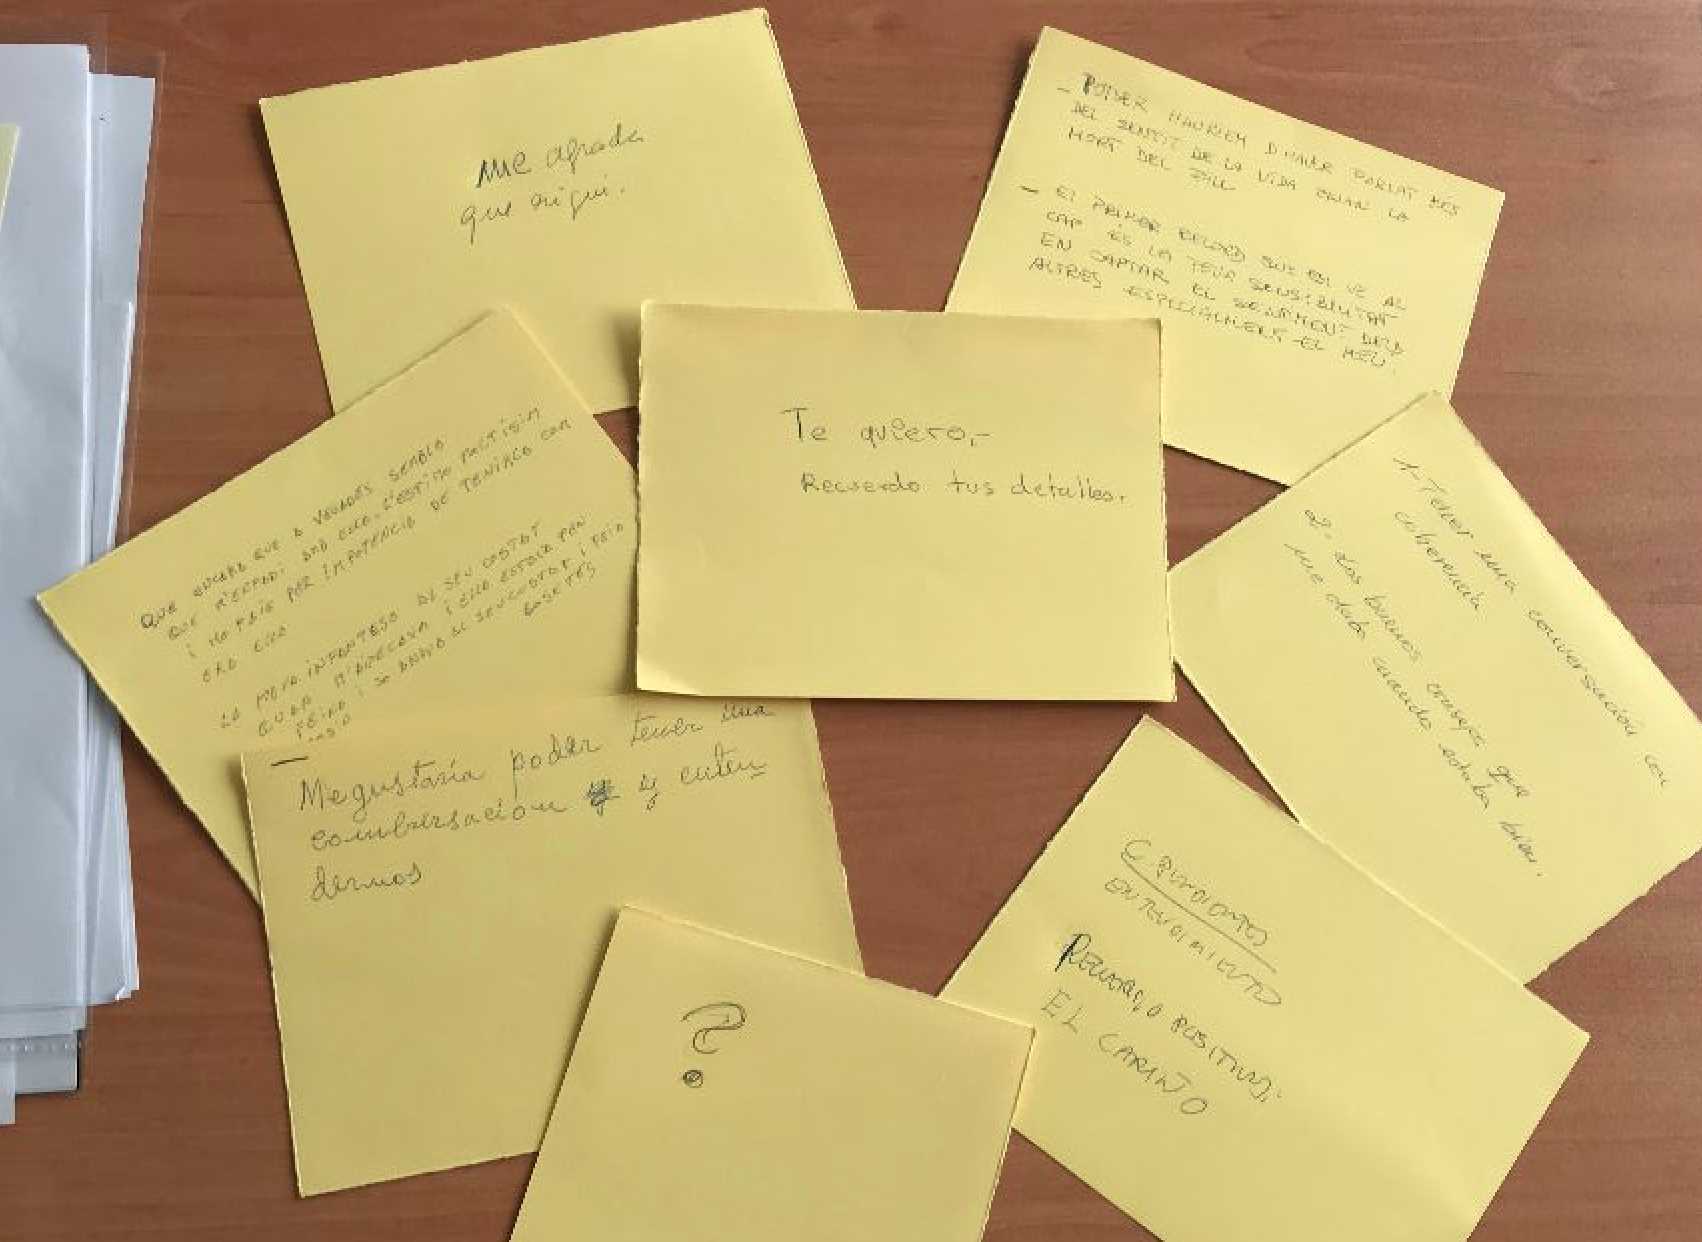 Me agrada
que rigui.
- POTSER HAURIEM D'HAVER PARLAT MÉS
DEL SENTIT DE LA VIDA QUAN LA
MORT DEL FILL
- EL PRIMER RECORD QUE EM VE AL
CAP ÉS LA TEVA SENSIBILITAT
EN CAPTAR EL SENTIMENT DELS
ALTRES ESPECIALMENT EL MEU.
QUE ENCARA QUE A VEGADES SEMBLO
QUE M'ENFADI AMB ELLA. L'ESTIMO MOLTISIM
I HO FAIG PER IMPOTENCIA DE TENIRLA COM
ERA ELLA
LA MEVA INFANTESA AL SEU COSTAT
QUAN M'ADRECAVA I ELLA ESTAVA FAN
FEINA I JO ANAVA AL SEU COSTAT I FEIA
COSETES
Te quiero,-
Recuerdo tus detalles.
1- Tener una conversación con
coherencia
2- Los buenos consejos que
me daba cuando estaba bien.
-
Me gustaría poder tener una
combersación y enten
dernos
?
C PENDIENTES
ENTENDIMIENTO
RECUERDO POSITIVO:
EL CARIÑO